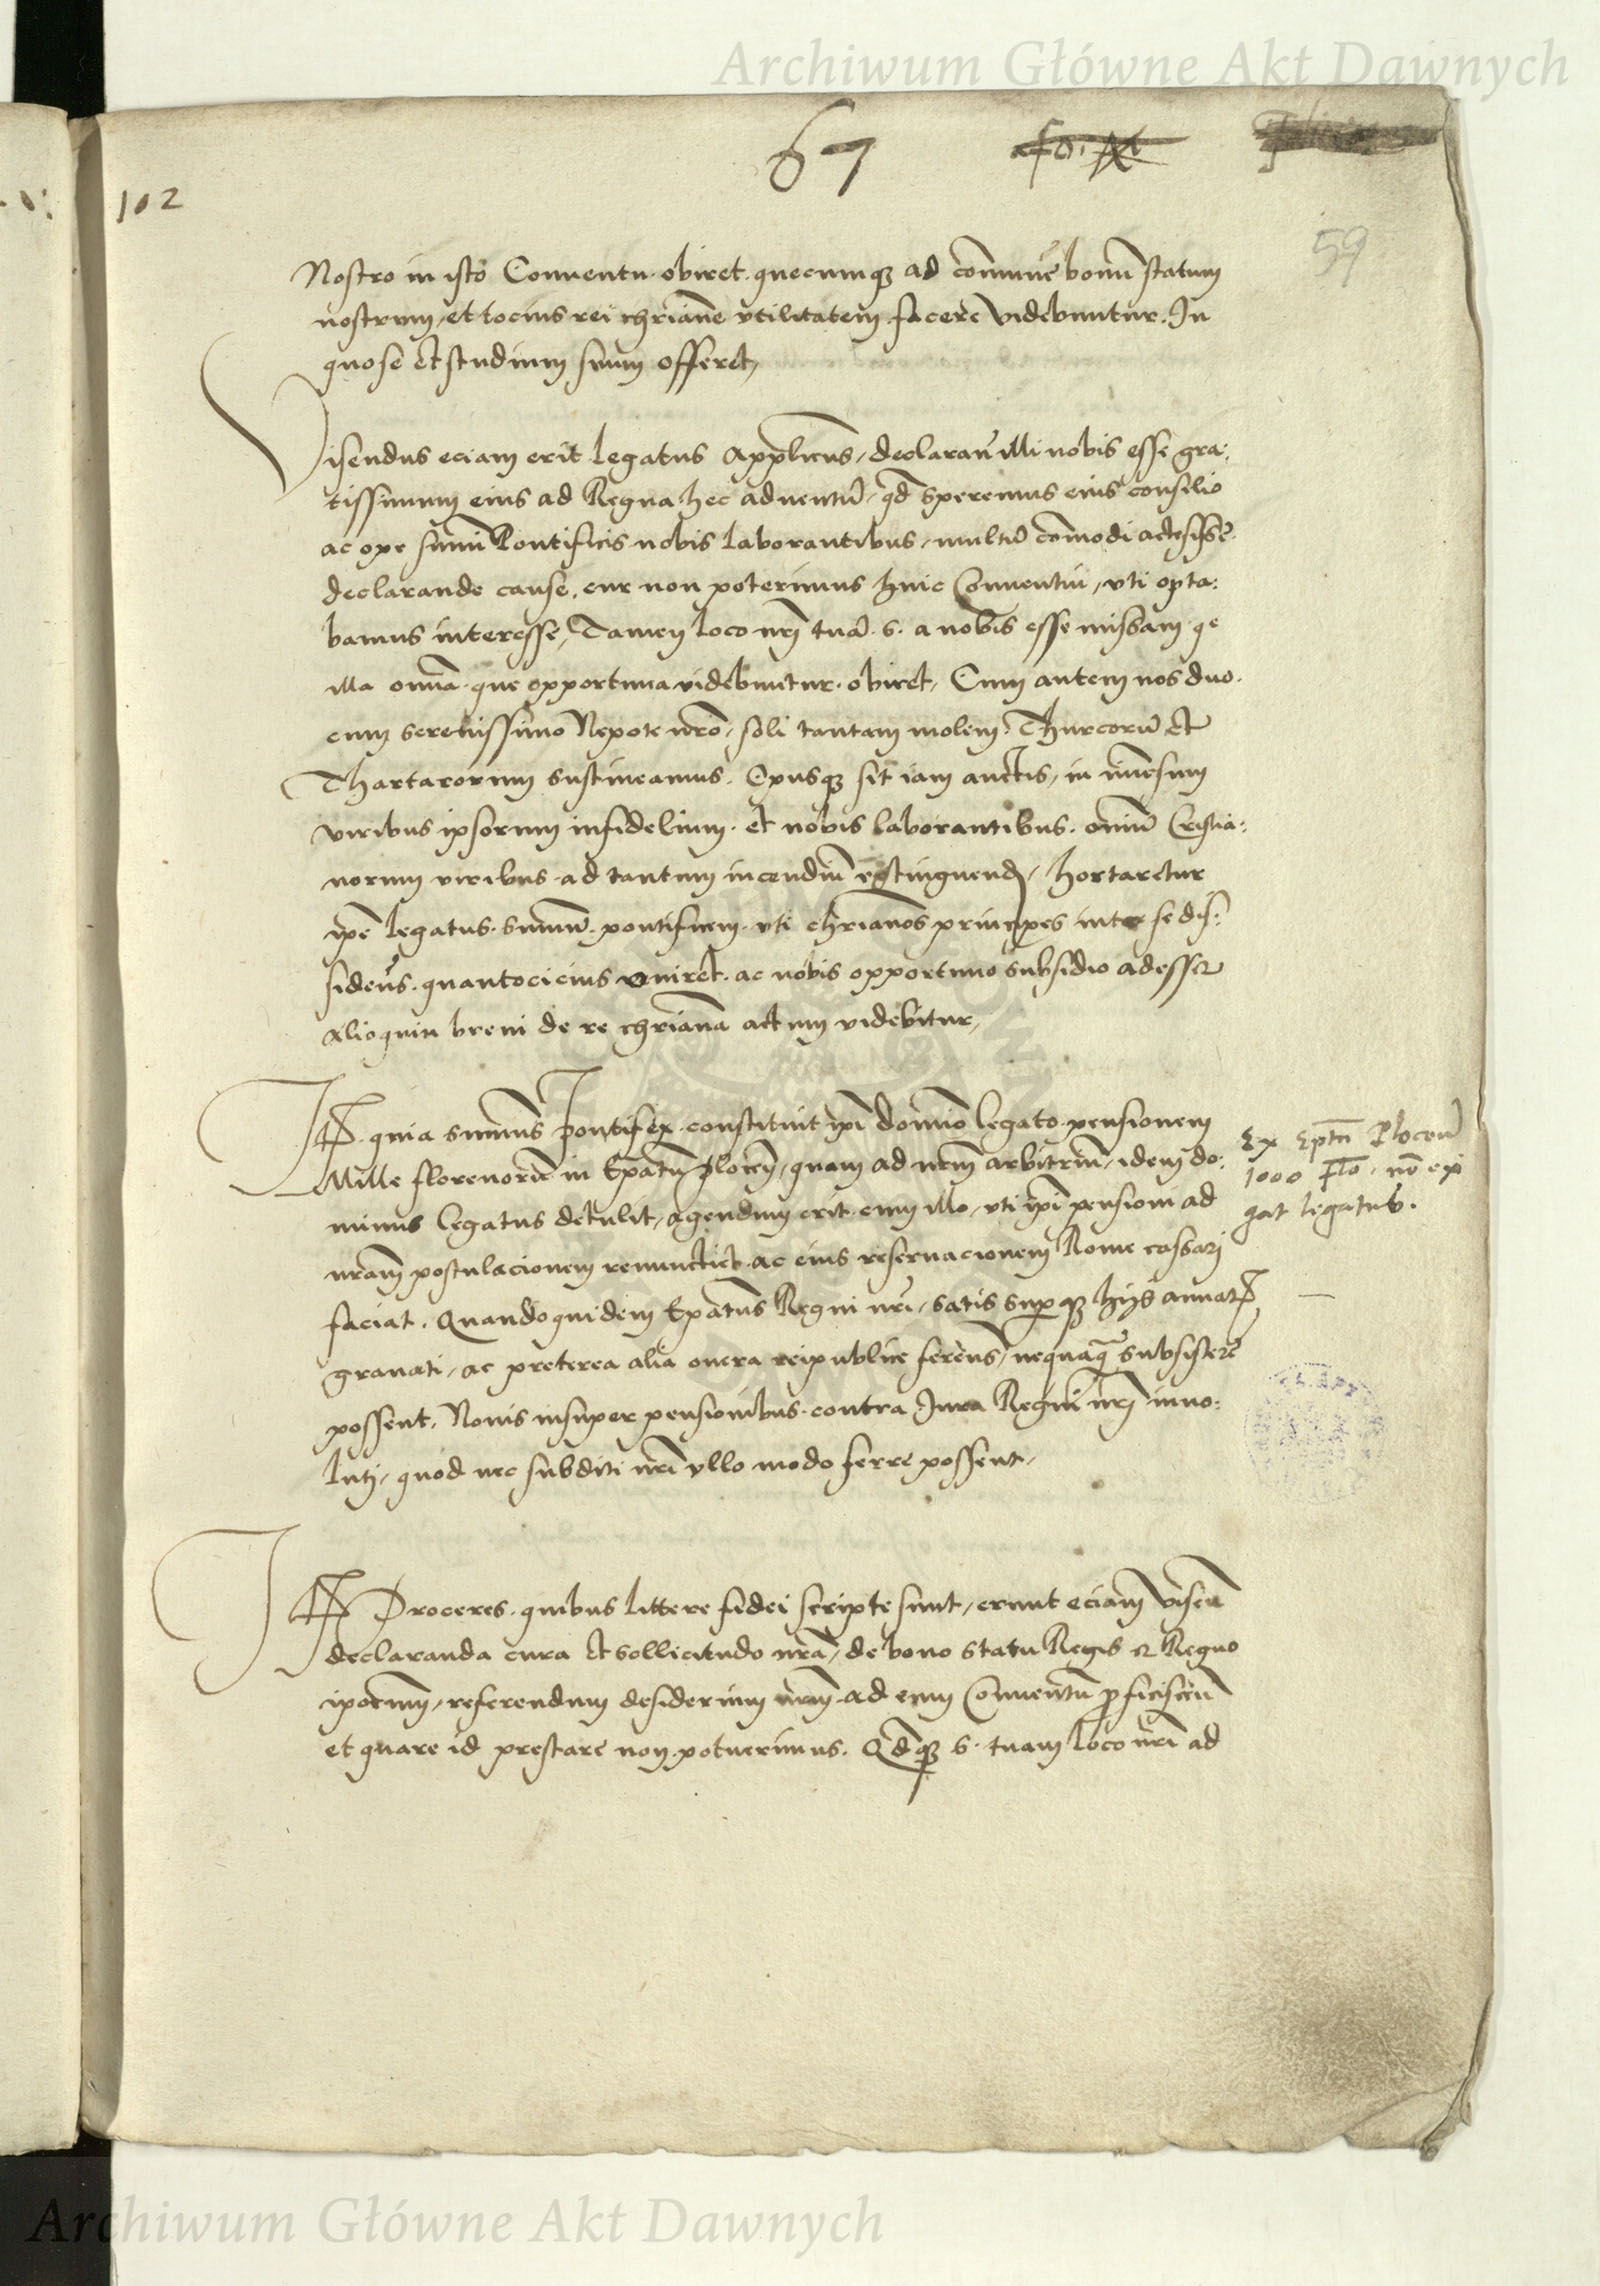 Archiwum Główne Akt Dawnych
67
102
59
Nostro in isto Conuentu. obiret. quecumqꝫ ad comunē bonū statum
nostrum, et tocius rei chrianē vtilitatem facere videbuntur. In
quo se et studium suum offeret,
Visendus eciam erit legatus Applicus, declaran̄ illi nobis esse gra:
tissimum eius ad Regna hec aduentū, qd̄ speremus eius consilio
ac ope sumi Pontificis nobis laborantibus, multū comodi
declarande cause, cur non poterimus huic Conuentui, vti opta:
bamus interesse, Tamen loco nrj tuā. s. a nobis esse missam. qe
illa omīa. que opportuna videbuntur. obiret, Cum autem nos duo.
cum serenissimo Nepote nrō, soli tantam molem Thurcorū et
Thartarorum sustineamus. Opusqꝫ sit iam auctis, in īmēsum
viribus ipsorum infidelium. et nobis laborantibus. omniū Cristia:
norum viribus ad tantum incendiū extinguend, hortaretur
ipē legatus. summū. pontificem. vti chrianos principes inter se dis:
siden̄s. quantocicius vniret. ac nobis opportuno subsidio adesset
Alioquin breui de re chriana actum videbitur,
Itē. quia summus Pontifex. constituit ipi domīo legato. pensionem
Mille florenorū in Epatū Plocen̄, quam ad nrm arbitriū, idem do:
minus legatus detulit, agendum erit cum illo, vti ipi pensioni ad
nrām postulacionem renunctiet. ac eius reseruacionem Rome cassarj
faciat. Quandoquidem Epatus Regni nrī, satis supqꝫ hijs annatis
grauati, ac preterea alia onera reipublice feren̄s, nequaq̄ subsistere
possent. Nouis insuper pensionibus. contra Jura Regni nrj inuo:
lutj, quod nec subditi nrī vllo modo ferre possent,
Ex Eptū Plocen̄
1000 Flo. nō exi
gat legatus.
Itē Proceres. quibus littere fidei scripte sunt, erunt eciam visen̄
declaranda cura et sollicitudo nrā, de bono statu Regis et Regno
ipōrum, referendum desiderium nrm ad eum Conuentū proficiscen̄
et quare id prestare non potuerimus. Qdqꝫ S. tuam loco nrī ad
Archiwum Główne Akt Dawnych